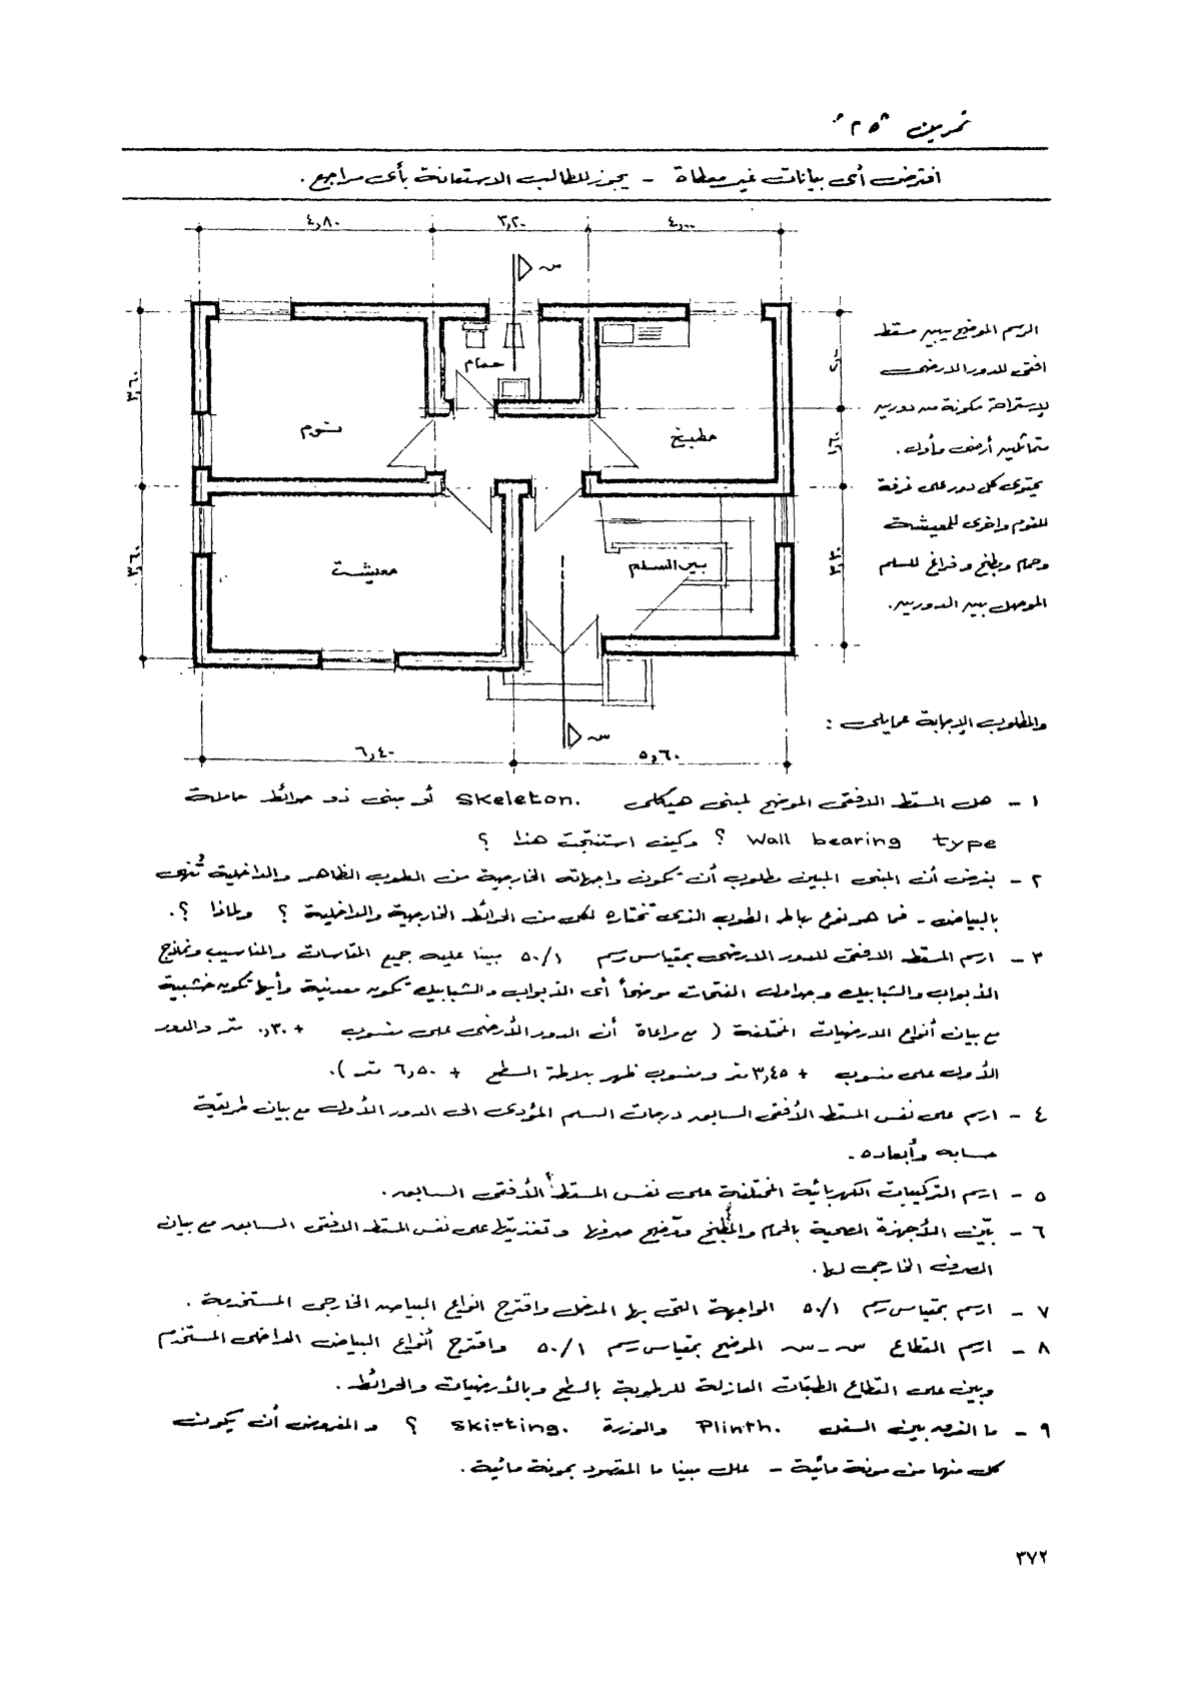 تمرين "٢٥"
افترض أى بيانات غير معطاة - يجوز للطالب الاستعانة بأى مراجع.
٤,٨٠
٣,٢٠
٤,٠٠
س
الرسم الموضح يبين مسقط
افقى للدور الارضى
لإستراحة مكونة من دورين
متماثلين أرضى وأول.
يحتوى كل دور على غرفة
للنوم واخرى للمعيشة
وحمام ومطبخ وفراغ للسلم
الموصل بين الدورين.
حمام
نوم
مطبخ
٣,٦٠
٢,٠٠
١,٦٠
معيشة
بير السلم
٣,٦٠
٣,٣٠
س
٦,٤٠
٥,٦٠
والمطلوب الإجابة عما يلى :
١ - هل المسقط الافقى الموضح لمبنى هيكلى Skeleton. أو مبنى ذو حوائط حاملة
Wall bearing type ؟ وكيف استنتجت هذا ؟
٢ - بفرض أن المبنى المبين مطلوب أن تكون واجهاته الخارجية من الطوب الظاهر والداخلية تُنهى
بالبياض - فما هو نوع رباط الطوب الذى تختاره لكل من الحوائط الخارجية والداخلية ؟ ولماذا ؟.
٣ - ارسم المسقط الافقى للدور الارضى بمقياس رسم ٥٠/١ مبينا عليه جميع المقاسات والمناسيب ونماذج
الأبواب والشبابيك وجداول الفتحات موضحاً أى الأبواب والشبابيك تكون معدنية وأيها تكون خشبية
مع بيان أنواع الارضيات المختلفة ( مع مراعاة أن الدور الأرضى على منسوب + ٠,٣٠ متر والدور
الأول على منسوب + ٣,٤٥ متر ومنسوب ظهر بلاطة السطح + ٦,٥٠ متر ).
٤ - ارسم على نفس المسقط الأفقى السابق درجات السلم المؤدى الى الدور الأول مع بيان طريقة
حسابه وأبعاده.
٥ - ارسم التركيبات الكهربائية المختلفة على نفس المسقط الأفقى السابق.
٦ - بيّن الأجهزة الصحية بالحمام والمطبخ وتوضيح صرفها وتغذيتها على نفس المسقط الافقى السابق مع بيان
الصرف الخارجى لها.
٧ - ارسم بمقياس رسم ٥٠/١ الواجهة التى بها المدخل واقترح انواع البياض الخارجى المستخدمة.
٨ - ارسم القطاع س - س الموضح بمقياس رسم ٥٠/١ واقترح أنواع البياض الداخلى المستخدم
وبين على القطاع الطبقات العازلة للرطوبة بالسطح وبالأرضيات والحوائط.
٩ - ما الفرق بين السفل Plinth. والوزرة Skirting. ؟ والمفروض أن يكون
كل منهما من مونة مائية - علل مبينا ما المقصود بمونة مائية.
٣٧٢